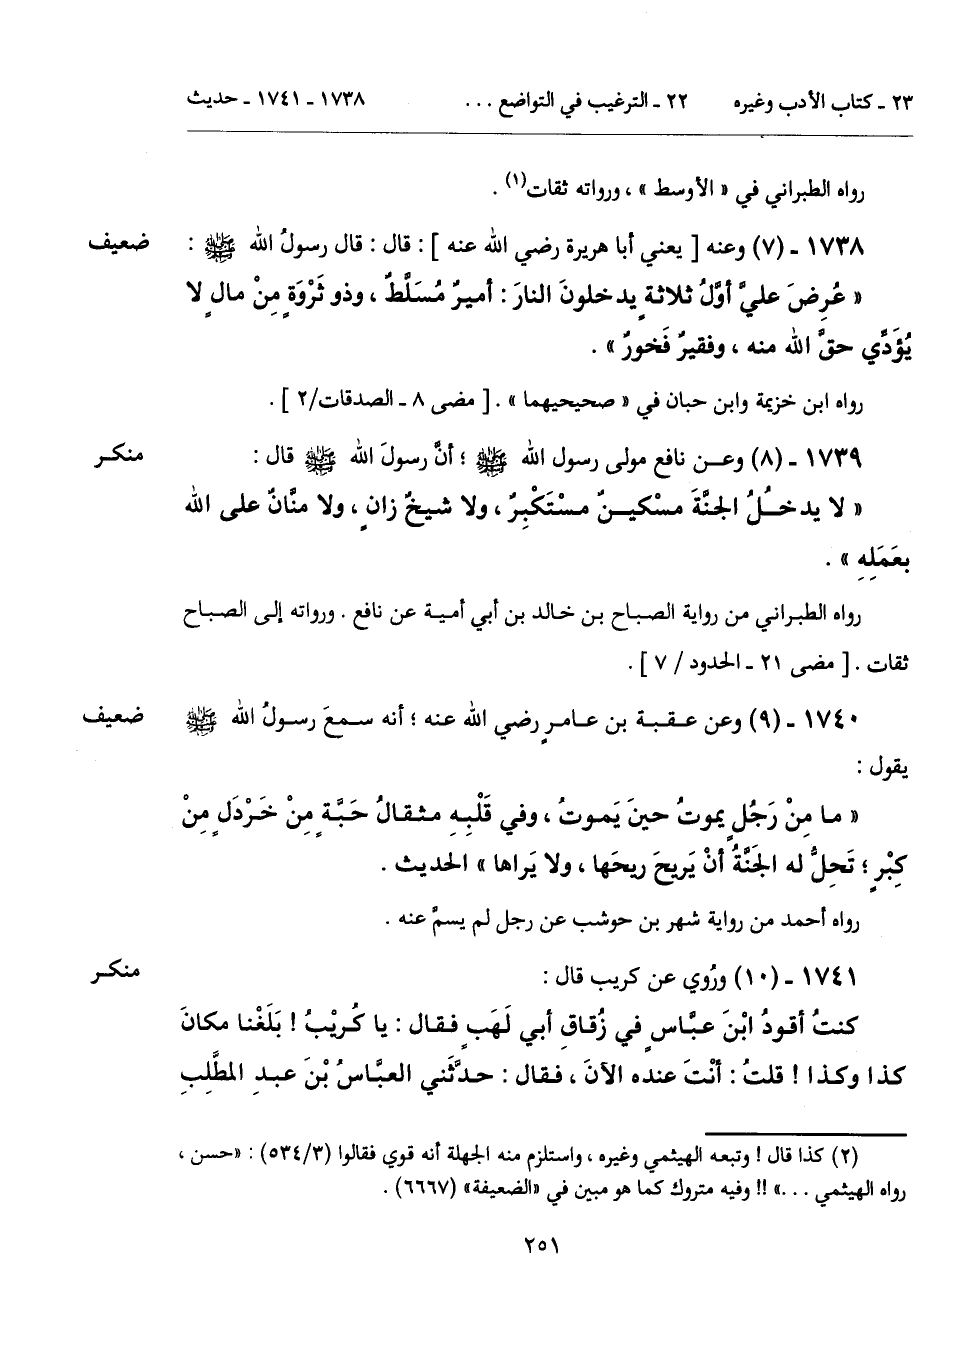 ٢٣ ـ كتاب الأدب وغيره ٢٢ ـ الترغيب في التواضع ... ١٧٣٨ ـ ١٧٤١ ـ حديث
رواه الطبراني في « الأوسط » ، ورواته ثقات(١) .
١٧٣٨ ـ (٧) وعنه [ يعني أبا هريرة رضي الله عنه ] : قال : قال رسولُ الله ﷺ : ضعيف
« عُرِضَ عليَّ أوَّلُ ثلاثةٍ يدخلونَ النارَ : أميرٌ مُسَلَّطٌ ، وذو ثَرْوَةٍ مِنْ مال لا
يُؤَدِّي حقَّ الله منه ، وفقيرٌ فَخورٌ » .
رواه ابن خزيمة وابن حبان في « صحيحيهما » . [ مضى ٨ ـ الصدقات/٢ ] .
١٧٣٩ ـ (٨) وعن نافع مولى رسول الله ﷺ ؛ أنَّ رسولَ الله ﷺ قال : منكر
« لا يدخلُ الجنَّةَ مسْكينٌ مسْتَكْبِرٌ ، ولا شيخٌ زانٍ ، ولا منَّانٌ على الله
بعَمَلِهِ » .
رواه الطبراني من رواية الصباح بن خالد بن أبي أمية عن نافع . ورواته إلى الصباح
ثقات . [ مضى ٢١ ـ الحدود / ٧ ] .
١٧٤٠ ـ (٩) وعن عقبة بن عامرٍ رضي الله عنه ؛ أنه سمعَ رسولُ الله ﷺ ضعيف
يقول :
« ما مِنْ رَجُلٍ يموتُ حينَ يَموتُ ، وفي قَلْبِهِ مثقالُ حَبَّةٍ مِنْ خَرْدَلٍ مِنْ
كِبْرٍ ؛ تَحِلُّ له الجَنَّةُ أنْ يَريحَ ريحَها ، ولا يَراها » الحديث .
رواه أحمد من رواية شهر بن حوشب عن رجل لم يسمَّ عنه .
١٧٤١ ـ (١٠) ورُوي عن كريب قال : منكر
كنتُ أقودُ ابْنَ عبَّاسٍ في زُقاقِ أبي لَهَبٍ فقال : يا كُرَيْبُ ! بَلَغْنا مكانَ
كذا وكذا ! قلتُ : أنْتَ عنده الآنَ ، فقال : حدَّثَني العبَّاسُ بْنَ عبدِ المطَّلِبِ
(٢) كذا قال ! وتبعه الهيثمي وغيره ، واستلزم منه الجهلة أنه قوي فقالوا (٥٣٤/٣) : «حسن ،
رواه الهيثمي . . .» !! وفيه متروك كما هو مبين في «الضعيفة» (٦٦٦٧) .
٢٥١